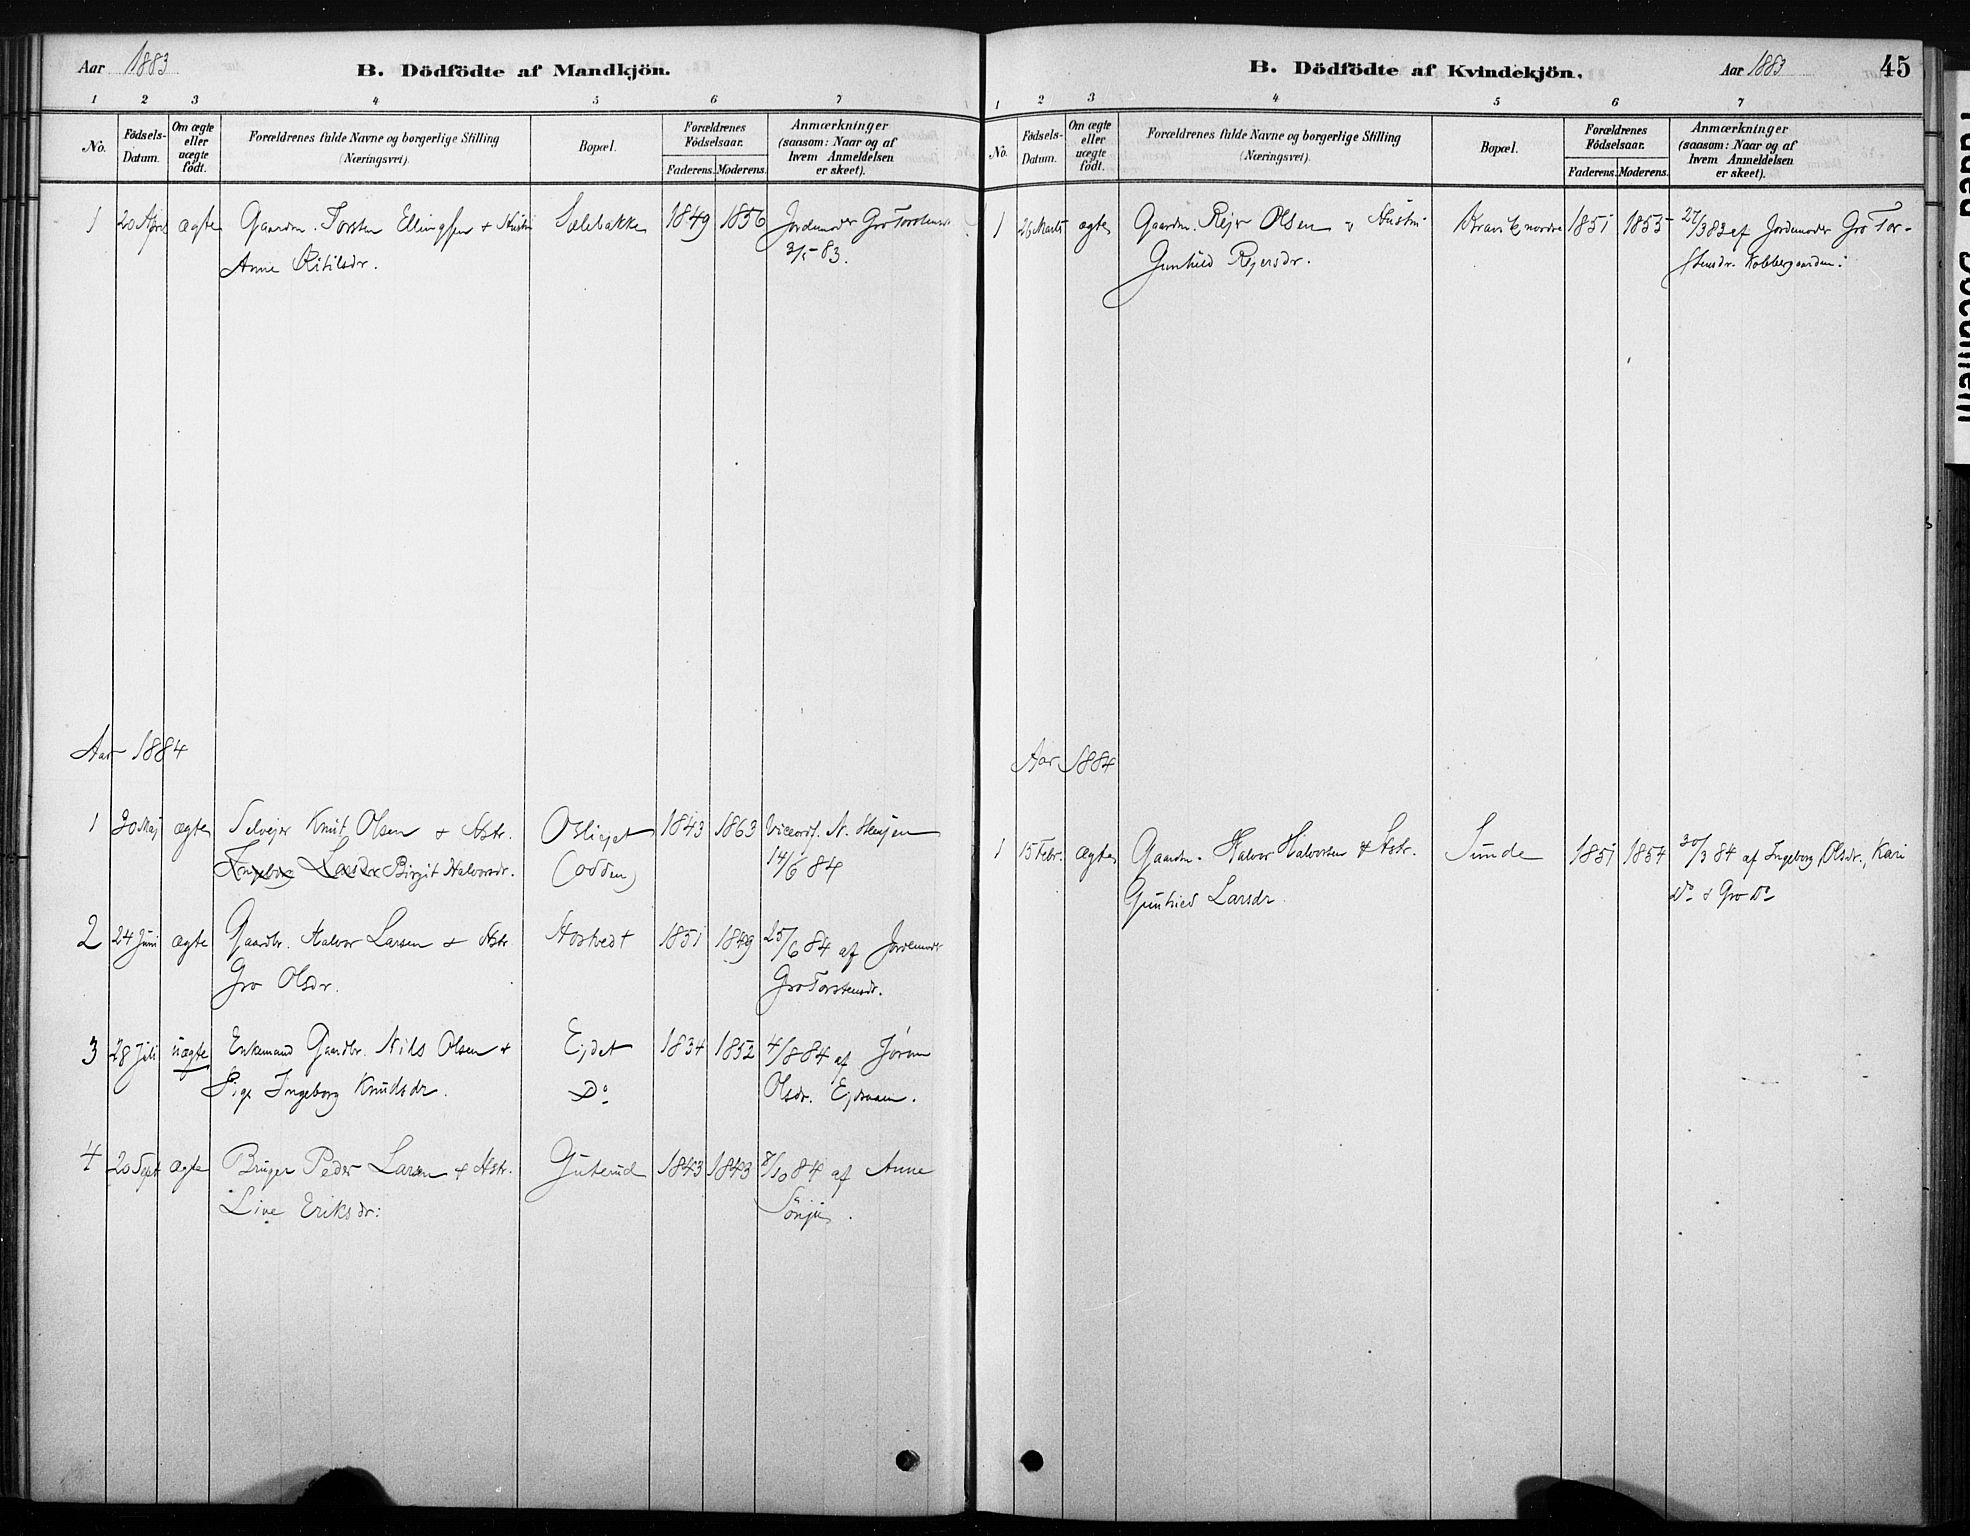 Aar 1883
B. Dödfödte af Mandkjön.
1 2 3 4 5 6 7
No.
Födsels-Datum.
Om ægte eller uægte födt.
Forældrenes fulde Navne og borgerlige Stilling
(Næringsvei).
Bopæl.
Forældrenes Födselsaar.
Faderens. Moderens.
Anmærkninger
(saasom: Naar og af
hvem Anmeldelsen
er skeet).
1 20 April ægte Gaardm. Torsten Ellingsen + Hustru Sælebakke 1849 1856 Jordemoder Gro Torstensdr
Anne Kitilsdr. 83.
Aar 1884
1 30 Maj ægte Selvejer Knut Olsen + Hstr. Osliejet 1843 1863 N.
Birgit Halvorsdr. (Odden) 14/6 84
2 24 Juni ægte Gaardbr. Halvor Larsen + Hstr 1851 1849 25/6 84 af Jordemodr
Gro Olsdr. Gro Torstensdr.
3 28 Juli uægte Enkemand Gaardbr. Nils Olsen + Ejdet 1834 1852 4/8 84 af Jøran
Pige Ingeborg Knudsdr. Do Olsdr.
4 20 Sept ægte Bruger Peder Larsen + Hstr. Guterud 1843 1843 8/10 84 af Anne
Live Eriksdr:
B. Dödfödte af Kvindekjön.
Aar 1883
45
1 2 3 4 5 6 7
No.
Födsels-Datum.
Om ægte eller uægte födt.
Forældrenes fulde Navne og borgerlige Stilling
(Næringsvei).
Bopæl.
Forældrenes Födselsaar.
Faderens. Moderens.
Anmærkninger
(saasom: Naar og af
hvem Anmeldelsen
er skeet).
1 26 Marts ægte Gaardm. Rejer Olsen & Hustru Kravik nordre 1851 1855 27/3 83 af Jordemoder Gro Tor-
Gunhild Rejersdr. stensdr. Kobbergaarden.
Aar 1884
1 15 Febr. ægte Gaardm. Halvor Halvorsen & Hstr. Sunde 1851 1854 30/3 84 af Ingeborg Olsdr., Kari
Gunhild Larsdr Do & Gro Do